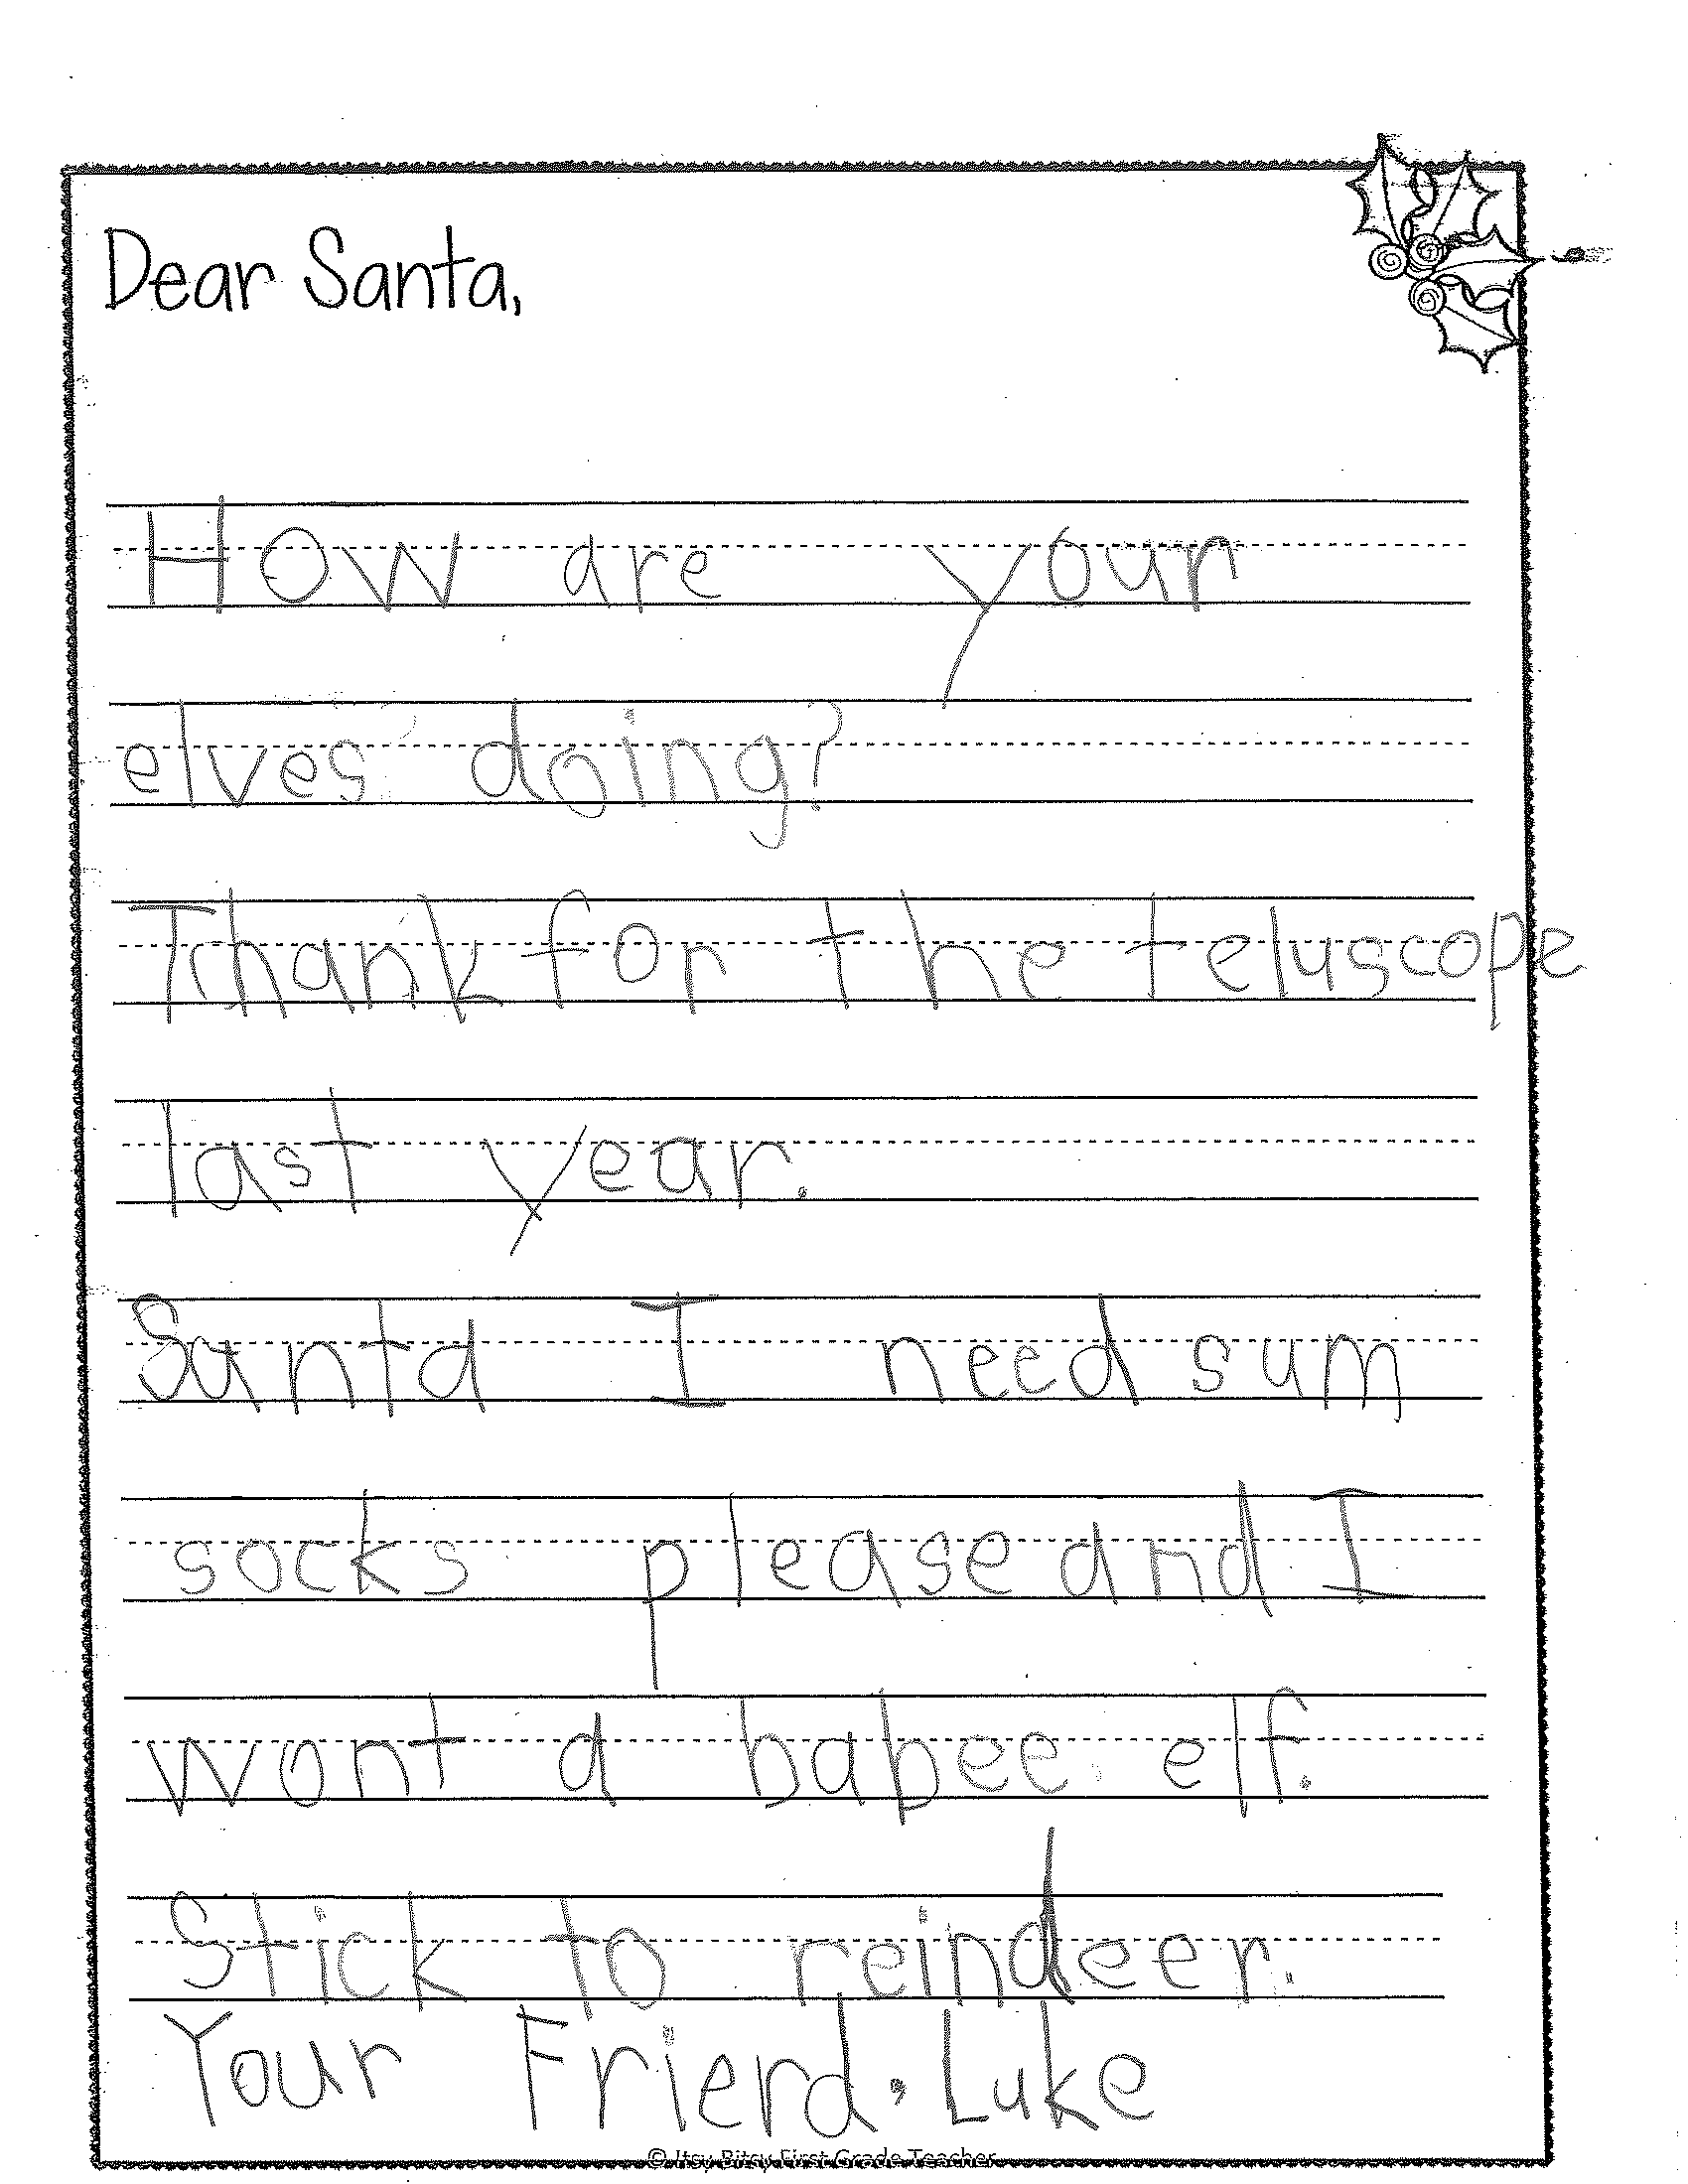 Dear Santa,
How are your
elves doing?
Thank for the teluscope
last year.
Santa I need sum
socks please and I
wont a babee elf.
Stick to reindeer.
Your Friend, Luke
© Itsy Bitsy First Grade Teacher